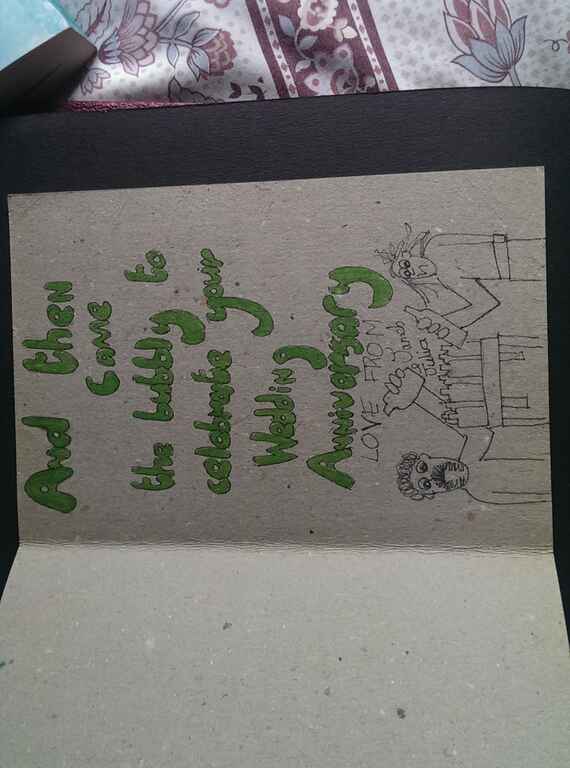 And then
Came
the bubbly to
celebrate your
Wedding
Anniversary
LOVE FROM
Sarah
& Julia